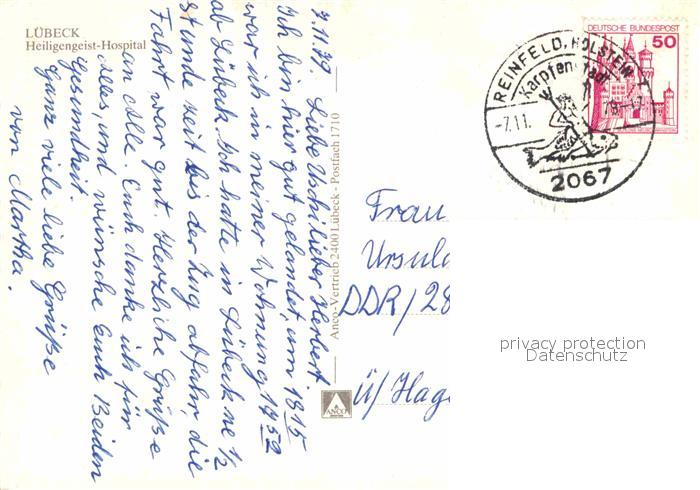 LÜBECK
Heiligengeist-Hospital
7.11.79. Liebe Uschi, lieber Herbert.
Ich bin hier gut gelandet, um 18 15
war ich in meiner Wohnung, 14 52
ab Lübeck. Ich hatte in Lübeck ne 1/2
stunde zeit bis der Zug abfuhr, die
Fahrt war gut. Herzliche Grüße
an Alle Euch danke ich für
alles, und wünsche Euch Beiden
Gesundheit.
Ganz viele liebe Grüße
von Martha.
Anco-Vertrieb 2400 Lübeck - Postfach 1710
ANCO
DEUTSCHE BUNDESPOST
50
REINFELD, HOLSTEIN 1
Karpfenstadt
-7.11.
2067
Frau
Ursul
DDR/28
Ü/Hag
privacy protection
Datenschutz